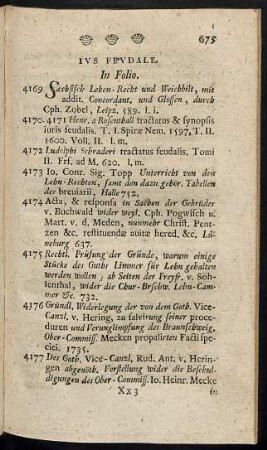 675
IVS FEVDALE.
In Folio.
4169 Sæchsisch Lehen-Recht und Weichbilt, mit
addit. Concordant, und Glossen, durch
Cph. Zobel, Leipz. 589. l. i.
4170. 4171 Henr. a Rosenthall tractatus & synopsis
iuris feudalis. T. I. Spiræ Nem. 1597, T. II.
1600. Voll. II. l. m.
4172 Ludolphi Schraderi tractatus feudalis. Tomi
II. Frf. ad M. 620. l. m.
4173 Io. Conr. Sig. Topp Unterricht von den
Lehn-Rechten, samt den dazu gehör. Tabellen
der breuiarii, Halle 752.
4174 Acta, & responsa in Sachen der Gebrüder
v. Buchwald wider weyl. Cph. Pogwisch u.
Mart. v. d. Meden, nunmehr Christ. Pent-
zen &c. restituendæ auitæ hered. &c. Lü-
neburg 637.
4175 Rechtl. Prüfung der Gründe, warum einige
Stücke des Guths Limmer für Lehn gehalten
werden wollen, ab Seiten der Freyfr. v. Söh-
lenthal, wider die Chur-Brschw. Lehn-Cam-
mer &c. 732.
4176 Gründl. Widerlegung der von dem Goth. Vice-
Canzl. v. Hering, zu salvirung seiner proce-
duren und Verunglimpfung des Braunschweig.
Ober-Commiss. Mecken propalirten Facti spe-
ciei. 1735.
4177 Des Goth. Vice-Canzl. Rud. Ant. v. Herin-
gen abgenöth. Vorstellung wider die Beschul-
digungen des Ober-Commiss. Io. Heinr. Mecke
Xx 3 in